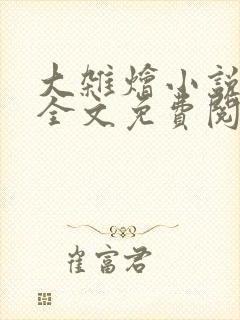 大雜燴小說
全文免費閱
崔富君